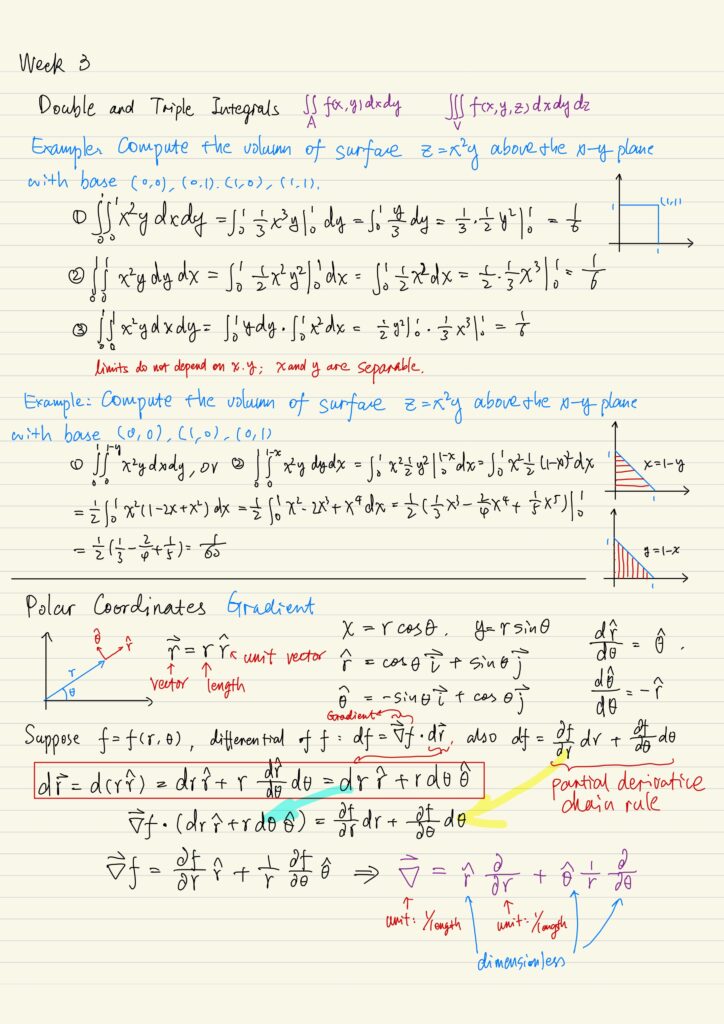 Week 3
Double and Triple Integrals ∬_A f(x,y)dxdy ∭_V f(x,y,z)dxdydz
Example: Compute the volumn of surface z=x²y above the x-y plane
with base (0,0), (0,1). (1,0), (1,1).
① ∫₀¹∫₀¹ x²y dxdy = ∫₀¹ 1/3 x³y|₀¹ dy = ∫₀¹ y/3 dy = 1/3 · 1/2 y²|₀¹ = 1/6
1 (1,1)
1
② ∫₀¹∫₀¹ x²y dy dx = ∫₀¹ 1/2 x²y²|₀¹ dx = ∫₀¹ 1/2 x² dx = 1/2 · 1/3 x³|₀¹ = 1/6
③ ∫₀¹∫₀¹ x²y dxdy = ∫₀¹ y dy · ∫₀¹ x² dx = 1/2 y²|₀¹ · 1/3 x³|₀¹ = 1/6
limits do not depend on x.y; x and y are separable.
Example: Compute the volumn of surface z=x²y above the x-y plane
with base (0,0), (1,0), (0,1)
① ∫₀¹∫₀^(1-y) x²y dxdy, or ② ∫₀¹∫₀^(1-x) x²y dydx = ∫₀¹ x² 1/2 y²|₀^(1-x) dx = ∫₀¹ x² 1/2 (1-x)² dx
1 x=1-y
1
= 1/2 ∫₀¹ x²(1-2x+x²) dx = 1/2 ∫₀¹ x²-2x³+x⁴ dx = 1/2 (1/3 x³ - 2/4 x⁴ + 1/5 x⁵)|₀¹
= 1/2 (1/3 - 2/4 + 1/5) = 1/60
1 y=1-x
1
Polar Coordinates Gradient
θ̂ r̂
r
θ
r⃗ = r r̂ unit vector
vector length
x = r cosθ. y = r sinθ
r̂ = cosθ i⃗ + sinθ j⃗
θ̂ = -sinθ i⃗ + cosθ j⃗
dr̂/dθ = θ̂ .
dθ̂/dθ = -r̂
Gradient
Suppose f = f(r,θ), differential of f: df = ∇⃗f · dr⃗, also df = ∂f/∂r dr + ∂f/∂θ dθ
dr⃗ = d(r r̂) = dr r̂ + r dr̂/dθ dθ = dr r̂ + r dθ θ̂
partial derivative
chain rule
∇⃗f · (dr r̂ + r dθ θ̂) = ∂f/∂r dr + ∂f/∂θ dθ
∇⃗f = ∂f/∂r r̂ + 1/r ∂f/∂θ θ̂ ⇒ ∇⃗ = r̂ ∂/∂r + θ̂ 1/r ∂/∂θ
unit: 1/length unit: 1/length
dimensionless